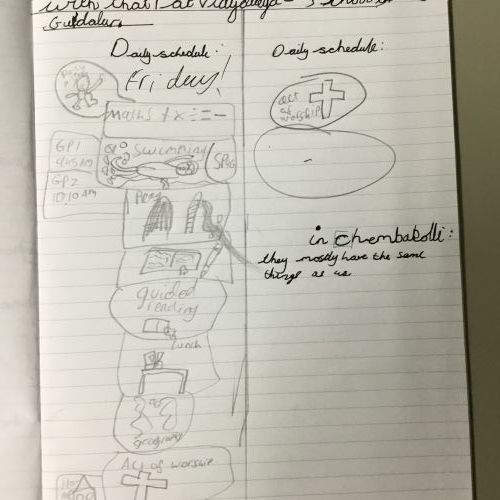 with that at Vidyodaya - School in
Gudalur.
Daily schedule:
Friday!
maths + x ÷ = -
GP1
9:45 AM
Swimming
SPaG
GP2
10:10 AM
Play
guided
reading
lunch
geography
Act of worship
Daily schedule:
act
of
worship
in Chembakolli:
they mostly have the same
things as us